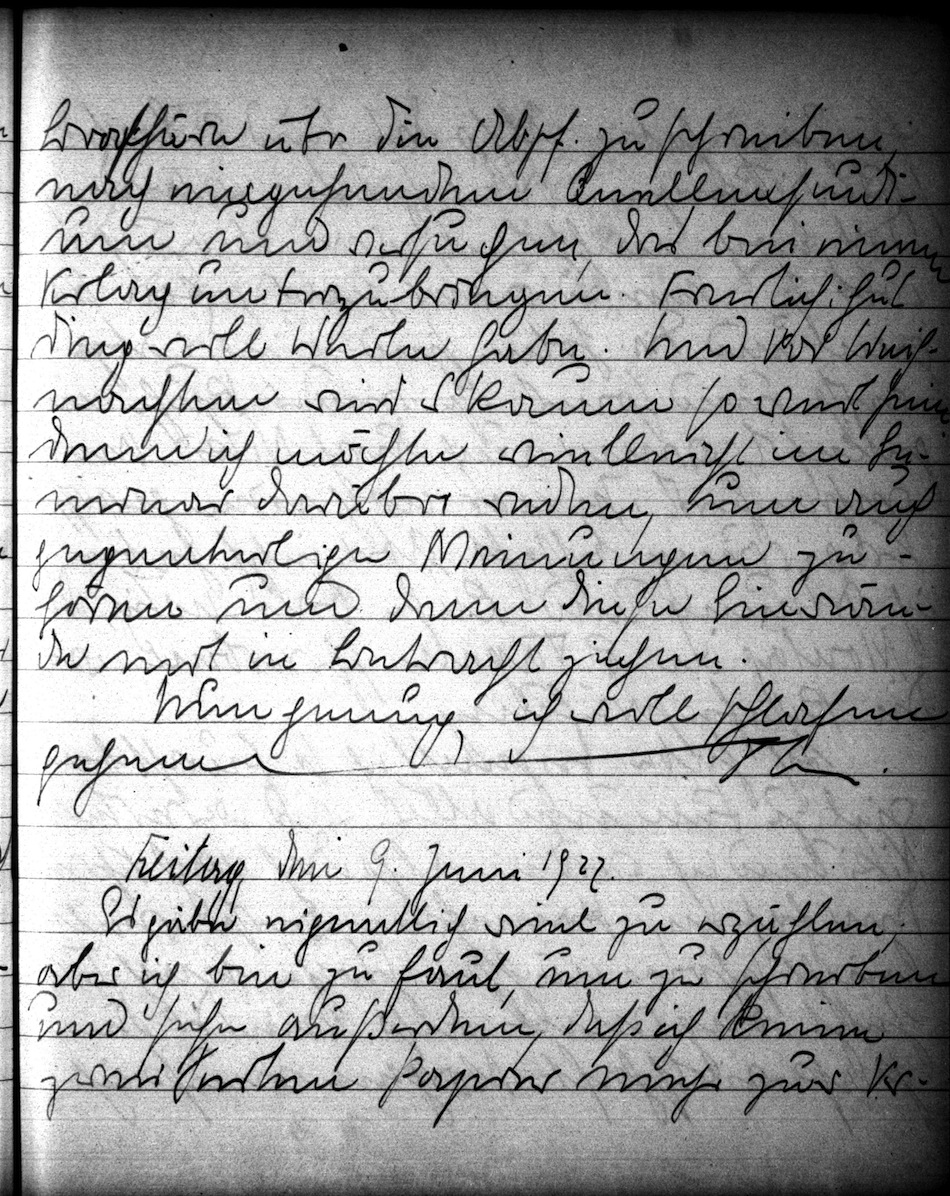 Broschüre übr die Abst. zu schreiben,
nach eingehendem Quellenstudi-
um und versuchen, das bei einem
Verlag unterzubringen. Freilich: gut
Ding will Weile haben. Und vor Weih-
nachten wird's kaum so weit sein
denn ich möchte vielleicht im Se-
minar darüber reden, um auch
gegenteilige Meinungen zu
hören und dann diese Einwän-
de mit in Betracht ziehen.
Nun genung, ich will schlafen
gehen
Freitag den 9. Juni 1922.
Es gäbe eigentlich viel zu erzählen,
aber ich bin zu faul, um zu schreiben
und sehe außerdem, daß ich keine
zwei Seiten Papier mehr zur Ver-